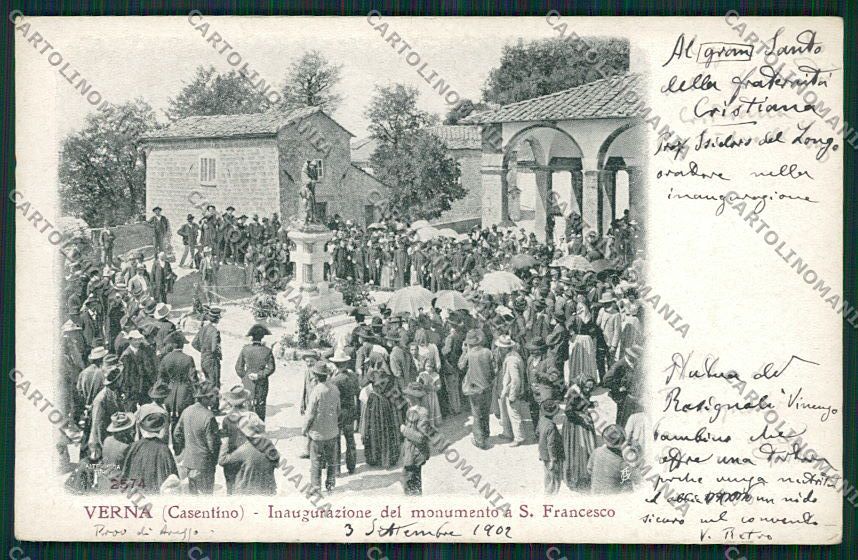 Al gran Santo
della fraternità
Cristiana
prof. Isidoro del Lungo
oratore nella
inaugurazione
Statua del
Rosignoli Vincenzo
bambino che
offre una
perche
un nido
sicuro nel convento
V. Retro
2574
VERNA (Casentino) - Inaugurazione del monumento a S. Francesco
Prov di Arezzo - 3 Settembre 1902
CARTOLINOMANIA